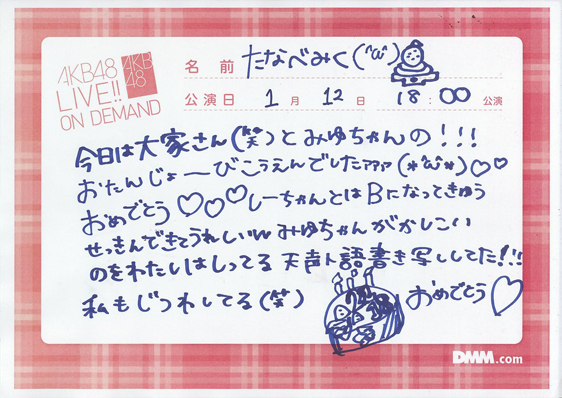 AKB48
LIVE!!
ON DEMAND
AKB
48
名前 たなべみく(^ω^)
公演日 1月 12日 18:00 公演
今日は大家さん(笑)とみゆちゃんの!!!
おたんじょーびこうえんでしたァァァ(*^ω^*)♡♡
おめでとう♡♡♡しーちゃんとはBになってきゅう
せっきんできてうれしいw みゆちゃんがかしこい
のをわたしはしってる 天声人語書き写ししてた!!
私もじつわしてる(笑)
おめでとう♡
DMM.com